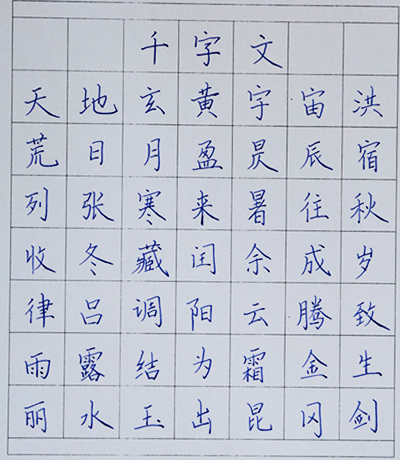 千字文
天地玄黄宇宙洪
荒日月盈昃辰宿
列张寒来暑往秋
收冬藏闰余成岁
律吕调阳云腾致
雨露结为霜金生
丽水玉出昆冈剑